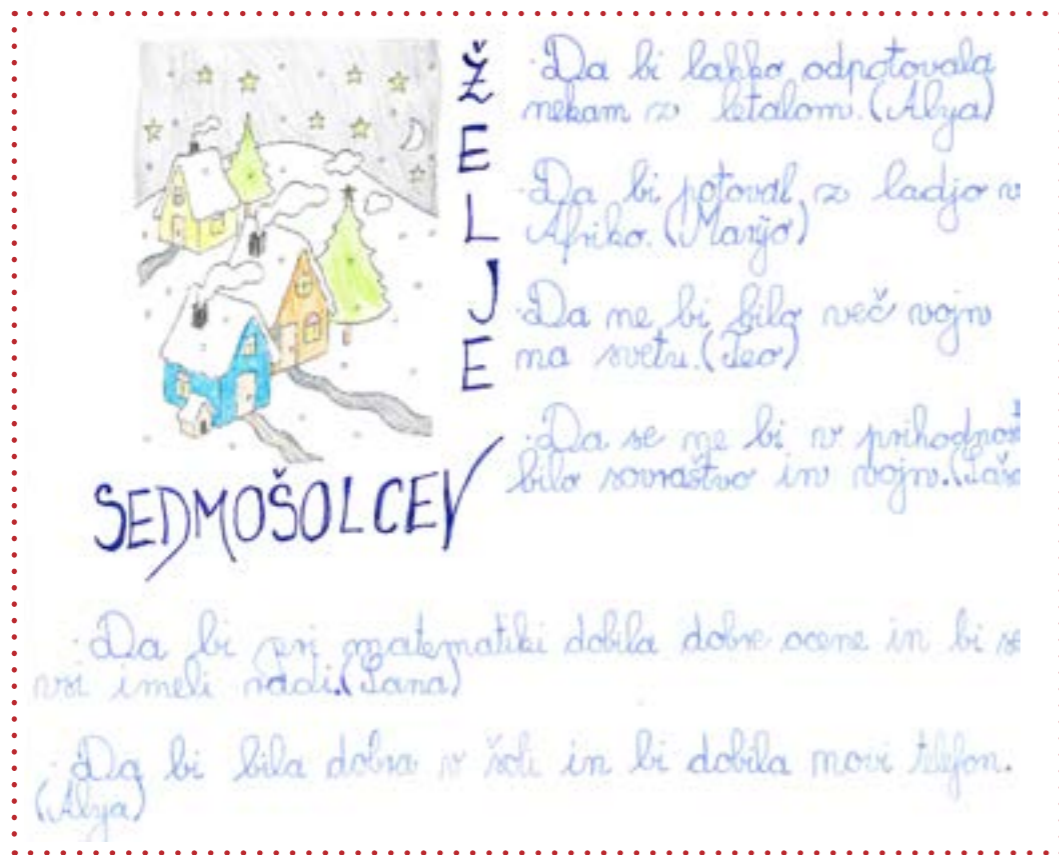 ŽELJE
SEDMOŠOLCEV
·Da bi lahko odpotovala
nekam z letalom. (Alya)
·Da bi potoval z ladjo v
Afriko. (Marijo)
·Da ne bi bilo več vojn
na svetu. (Teo)
·Da se ne bi v
bilo sovraštvo in vojn.
·Da bi pri matematiki dobila dobre ocene in bi se
vsi imeli radi. (Lana)
·Da bi bila dobra v šoli in bi dobila novi telefon.
(Alya)